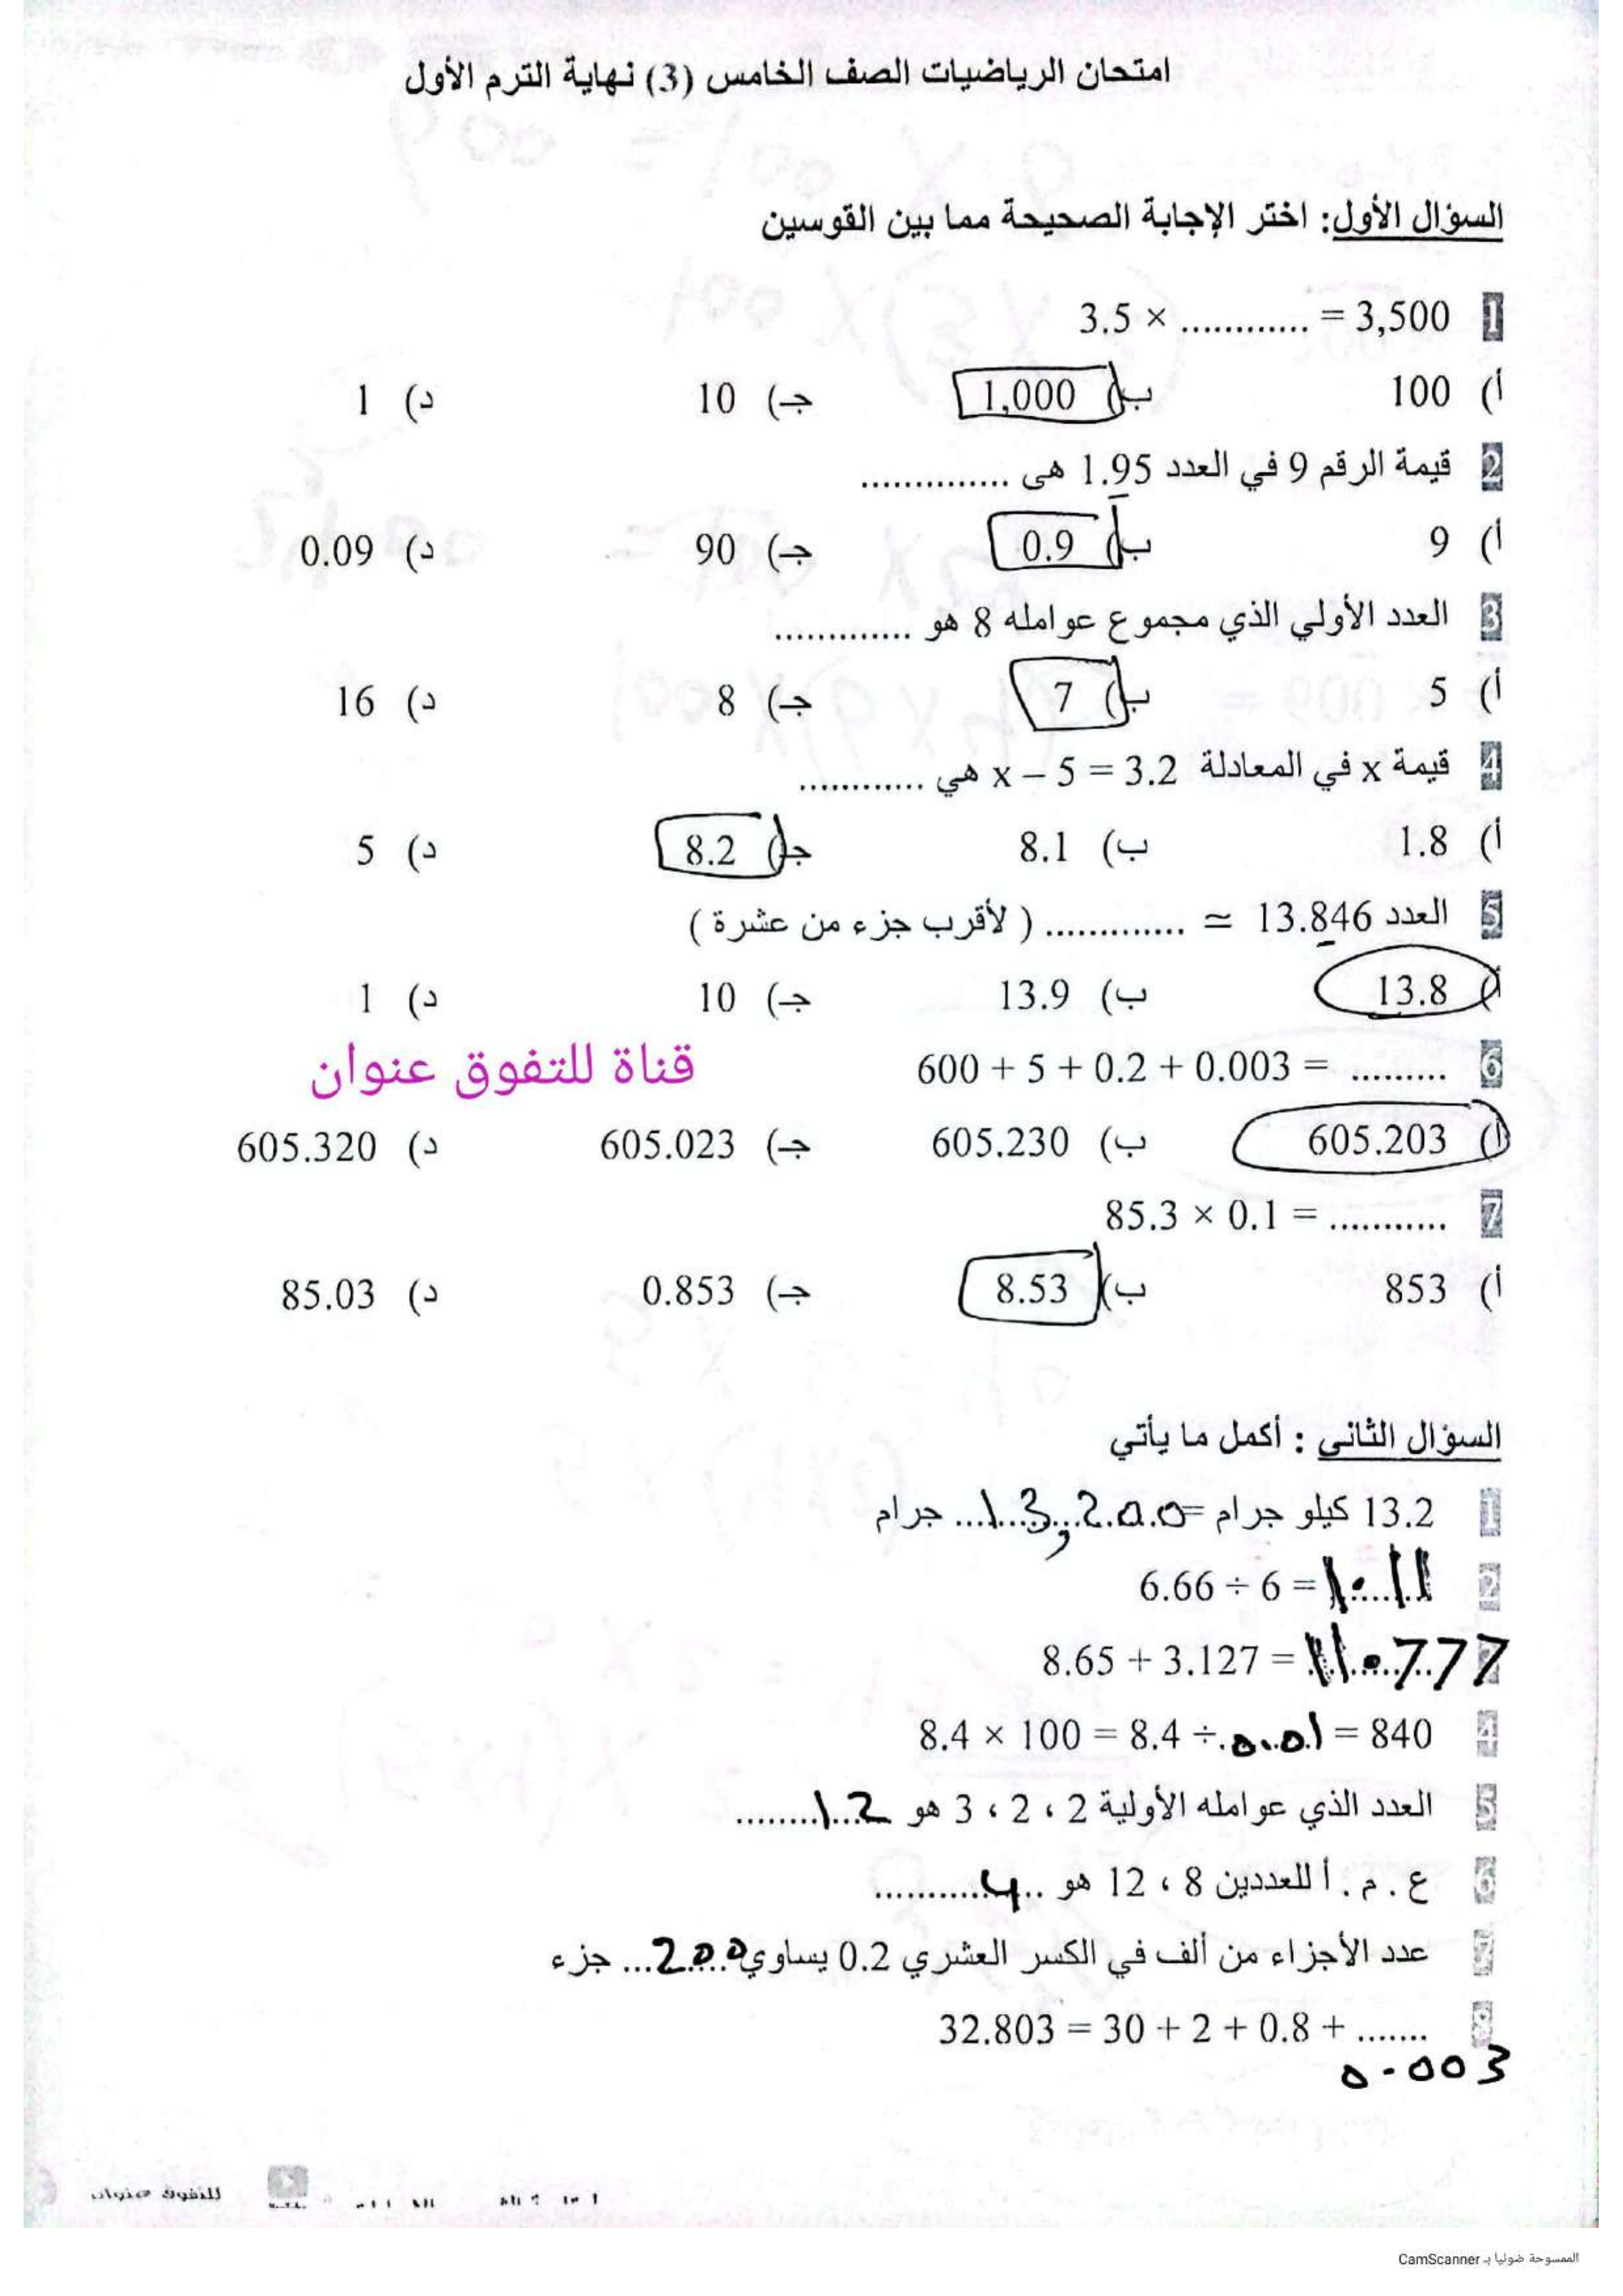 امتحان الرياضيات الصف الخامس (3) نهاية الترم الأول
السؤال الأول: اختر الإجابة الصحيحة مما بين القوسين
1 3.5 × ............ = 3,500
أ) 100 ب) 1,000 جـ) 10 د) 1
2 قيمة الرقم 9 في العدد 1.95 هى ..............
أ) 9 ب) 0.9 جـ) 90 د) 0.09
3 العدد الأولي الذي مجموع عوامله 8 هو .............
أ) 5 ب) 7 جـ) 8 د) 16
4 قيمة x في المعادلة x – 5 = 3.2 هي ............
أ) 1.8 ب) 8.1 جـ) 8.2 د) 5
5 العدد 13.846 ≃ ............. ( لأقرب جزء من عشرة )
أ) 13.8 ب) 13.9 جـ) 10 د) 1
6 600 + 5 + 0.2 + 0.003 = .........
قناة للتفوق عنوان
أ) 605.203 ب) 605.230 جـ) 605.023 د) 605.320
7 85.3 × 0.1 = ...........
أ) 853 ب) 8.53 جـ) 0.853 د) 85.03
السؤال الثاني : أكمل ما يأتي
1 13.2 كيلو جرام = 13,200 جرام
2 6.66 ÷ 6 = 1.11
8.65 + 3.127 = 11.777
4 8.4 × 100 = 8.4 ÷ 0.01 = 840
5 العدد الذي عوامله الأولية 2 ، 2 ، 3 هو 12
6 ع . م . أ للعددين 8 ، 12 هو 4
7 عدد الأجزاء من ألف في الكسر العشري 0.2 يساوي 200 جزء
8 32.803 = 30 + 2 + 0.8 + .......
0.003
للتفوق عنوان
الممسوحة ضوئيا بـ CamScanner